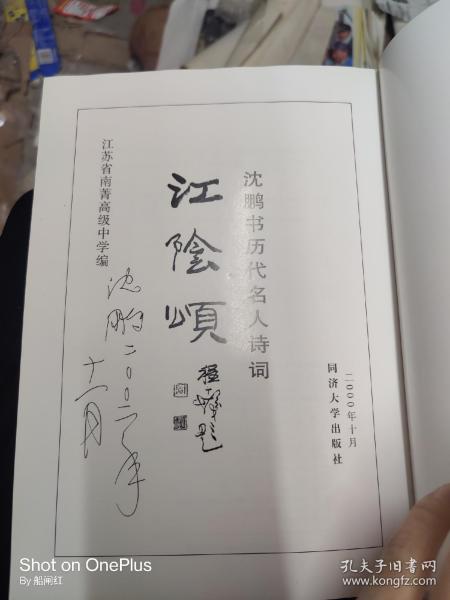 沈鹏书历代名人诗词
江陰頌
程十發题
江苏省南菁高级中学编
沈鹏二〇〇二年
十一月
二〇〇〇年十月
同济大学出版社
Shot on OnePlus
By 船闸红
孔夫子旧书网
www.kongfz.com